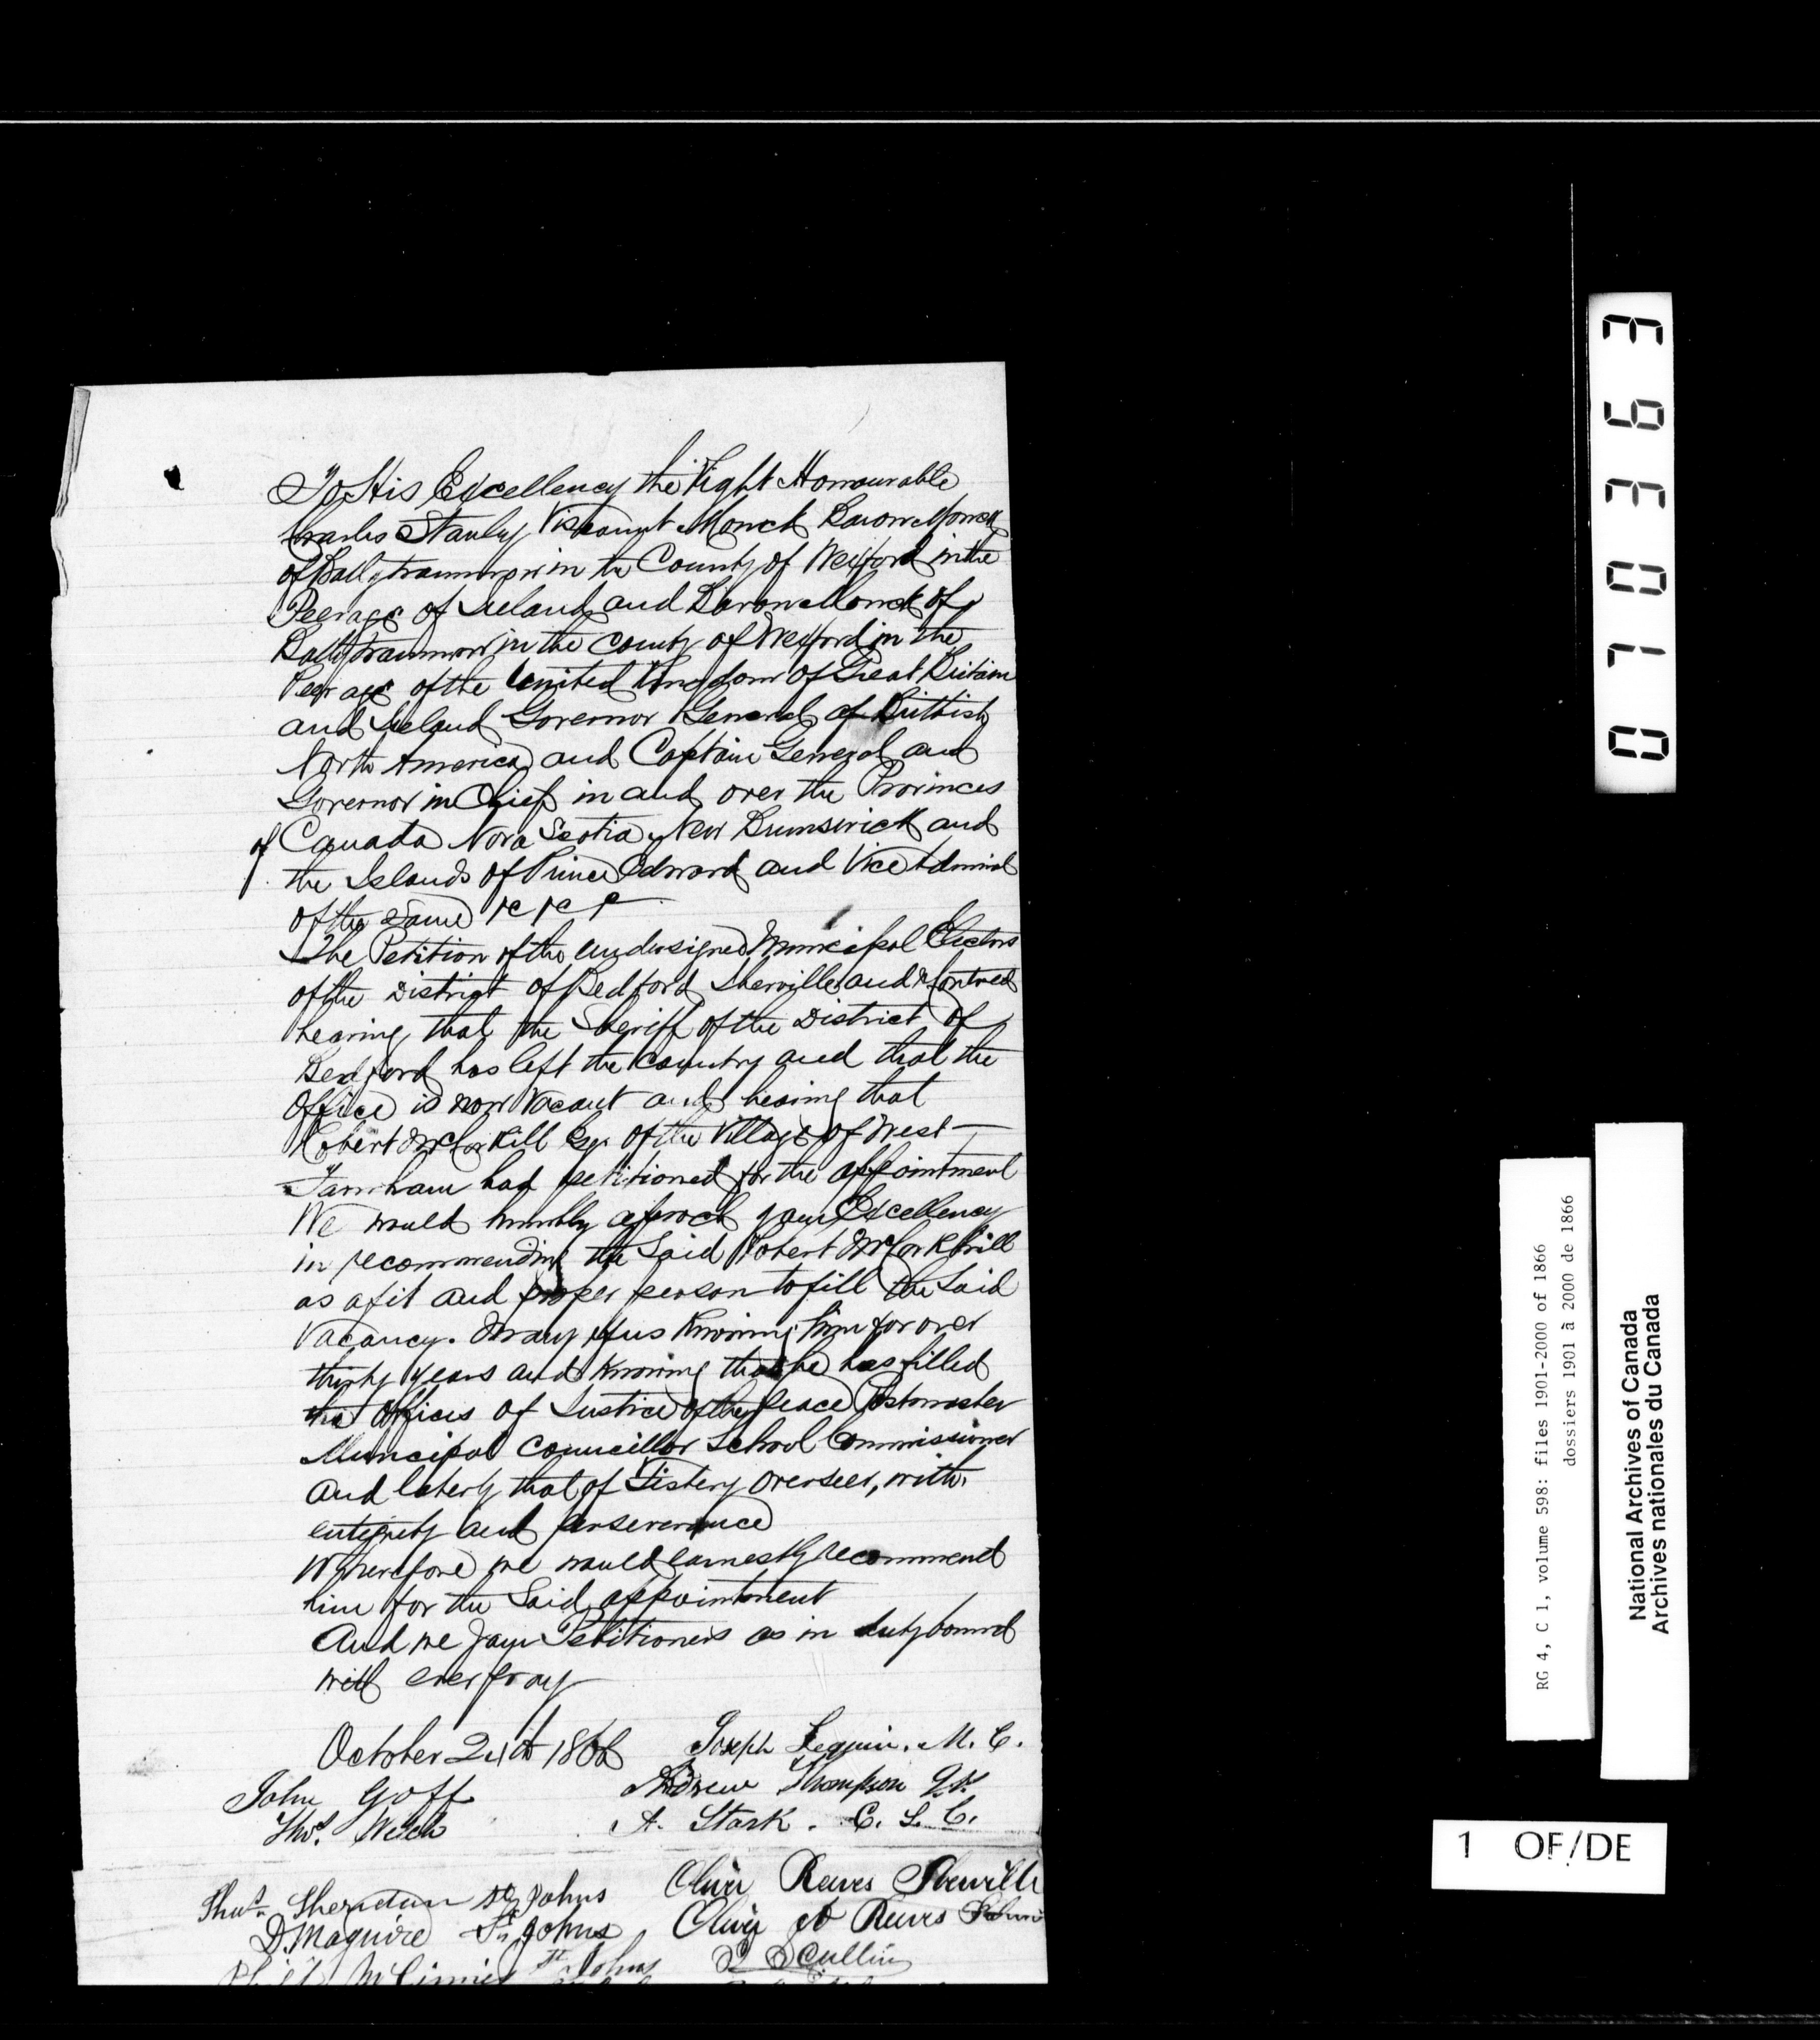 To His Excellency the Right Honourable
Charles Stanley Viscount Monck Baron Monck
of Ballytrammon in the County of Wexford in the
Peerage of Ireland and Baron Monck of
Ballytrammon in the county of Wexford in the
Peerage of the United Kingdom of Great Britain
and Ireland Governor General of Brittish
North America and Captain General and
Governor in Chief in and over the Provinces
of Canada Nova Scotia New Brunswick and
the Islands of Prince Edward and Vice Admiral
of the Same &c &c &
The Petition of the undersigned Municipal Electors
of the District of Bedford Iberville and Montreal
hearing that the Sheriff of the District of
Bedford has left the Country and that the
Office is now Vacant and hearing that
Robert McCorkill Esqr of the Village of West
Farnham had petitioned for the appointment
We would humbly aproch your Excellency
in recommending the Said Robert McCorkhill
as a fit and proper person to fill the Said
Vacancy. Many of us Knowing him for over
thirty years and Knowing that he has filled
the Offices of Justice of the peace Postmaster
Municipal Councillor School Commissioner
and laterly that of Fishery overseer, with
entegrety and perseverance
Wherefore we would earnestly recommend
him for the Said appointment
And we your Petitioners as in duty bound
will ever pray
October 24th 1866 Joseph Lequin. M. C.
John Goff Andrew Thompson
Thos. Welch A. Stark. C. S. C.
Thos. Sheridan St Johns Oliver Reeves Iberville
D. Maguire St Johns Oliver Reeves
McGinnis St Johns Scullin
0 7 0 3 6 3
RG 4, C 1, volume 598: files 1901-2000 of 1866
dossiers 1901 à 2000 de 1866
National Archives of Canada
Archives nationales du Canada
1 OF/DE